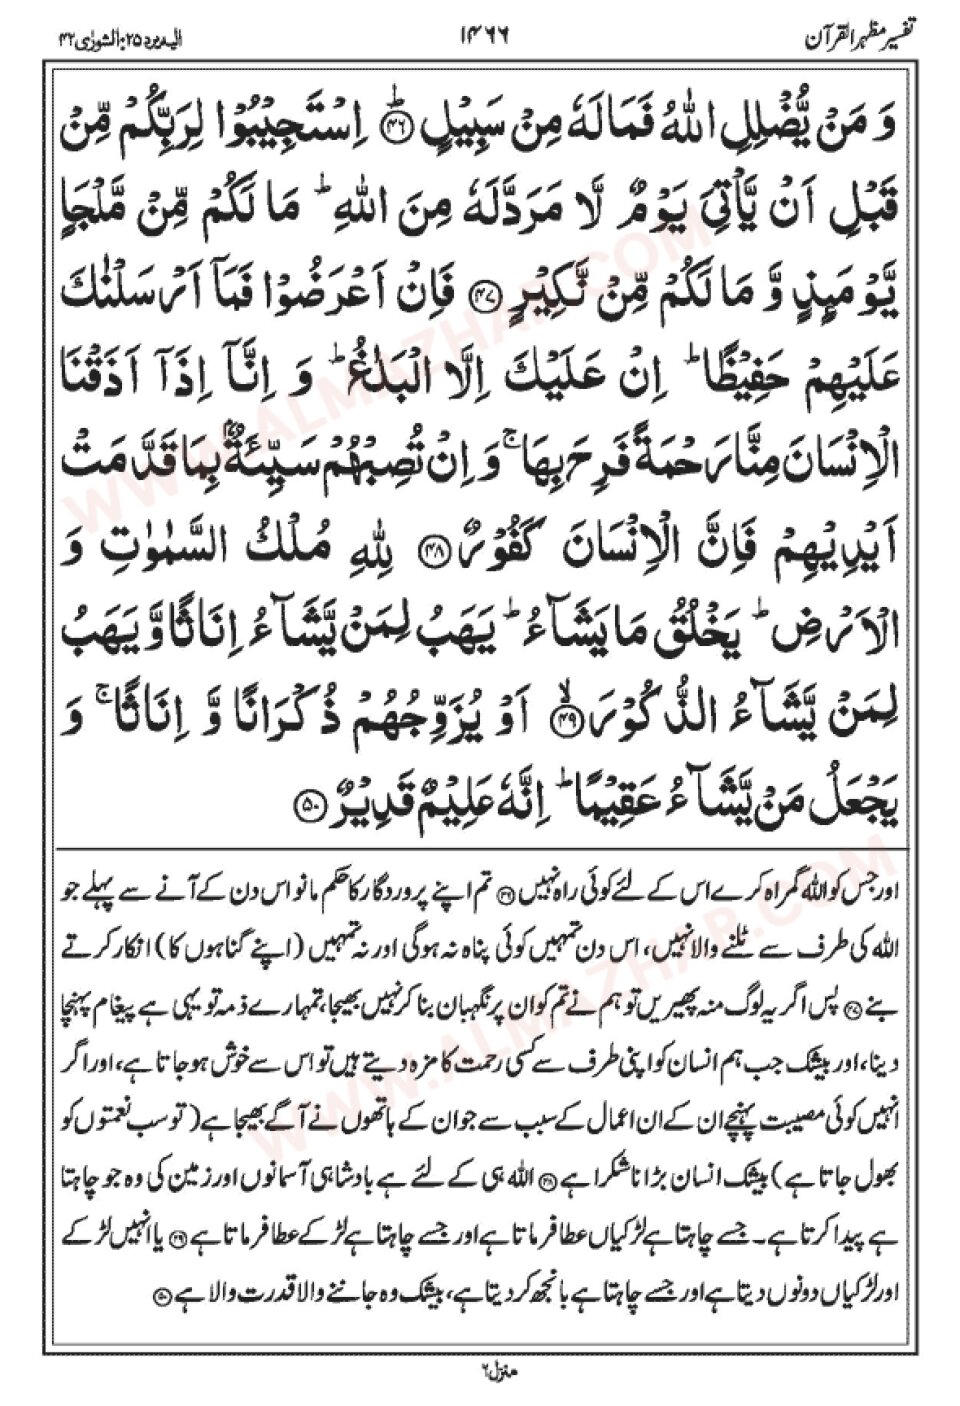 تفسیر مظہر القرآن
۱۴۶۶
الیہ یرد ۲۵: الشورٰی ۴۲
وَ مَنْ یُّضْلِلِ اللّٰهُ فَمَا لَهٗ مِنْ سَبِیْلٍؕ ﴿۴۶﴾ اِسْتَجِیْبُوْا لِرَبِّكُمْ مِّنْ
قَبْلِ اَنْ یَّاْتِیَ یَوْمٌ لَّا مَرَدَّ لَهٗ مِنَ اللّٰهِؕ مَا لَكُمْ مِّنْ مَّلْجَاٍ
یَّوْمَىِٕذٍ وَّ مَا لَكُمْ مِّنْ نَّكِیْرٍ ﴿۴۷﴾ فَاِنْ اَعْرَضُوْا فَمَاۤ اَرْسَلْنٰكَ
عَلَیْهِمْ حَفِیْظًاؕ اِنْ عَلَیْكَ اِلَّا الْبَلٰغُؕ وَ اِنَّاۤ اِذَاۤ اَذَقْنَا
الْاِنْسَانَ مِنَّا رَحْمَةً فَرِحَ بِهَاۚ وَ اِنْ تُصِبْهُمْ سَیِّئَةٌۢ بِمَا قَدَّمَتْ
اَیْدِیْهِمْ فَاِنَّ الْاِنْسَانَ كَفُوْرٌ ﴿۴۸﴾ لِلّٰهِ مُلْكُ السَّمٰوٰتِ وَ
الْاَرْضِؕ یَخْلُقُ مَا یَشَآءُؕ یَهَبُ لِمَنْ یَّشَآءُ اِنَاثًا وَّ یَهَبُ
لِمَنْ یَّشَآءُ الذُّكُوْرَۙ ﴿۴۹﴾ اَوْ یُزَوِّجُهُمْ ذُكْرَانًا وَّ اِنَاثًاۚ وَ
یَجْعَلُ مَنْ یَّشَآءُ عَقِیْمًاؕ اِنَّهٗ عَلِیْمٌ قَدِیْرٌ ﴿۵۰﴾
اور جس کو اللہ گمراہ کرے اس کے لئے کوئی راہ نہیں ﴿۴۶﴾ تم اپنے پروردگار کا حکم مانو اس دن کے آنے سے پہلے جو
اللہ کی طرف سے ٹلنے والا نہیں، اس دن تمہیں کوئی پناہ نہ ہوگی اور نہ تمہیں (اپنے گناہوں کا) انکار کرتے
بنے ﴿۴۷﴾ پس اگر یہ لوگ منہ پھیریں تو ہم نے تم کو ان پر نگہبان بنا کر نہیں بھیجا، تمہارے ذمہ تو یہی ہے پیغام پہنچا
دینا، اور بیشک جب ہم انسان کو اپنی طرف سے کسی رحمت کا مزہ دیتے ہیں تو اس سے خوش ہو جاتا ہے، اور اگر
انہیں کوئی مصیبت پہنچے ان کے ان اعمال کے سبب سے جو ان کے ہاتھوں نے آگے بھیجا ہے (تو سب نعمتوں کو
بھول جاتا ہے) بیشک انسان بڑا ناشکرا ہے ﴿۴۸﴾ اللہ ہی کے لئے ہے بادشاہی آسمانوں اور زمین کی وہ جو چاہتا
ہے پیدا کرتا ہے۔ جسے چاہتا ہے لڑکیاں عطا فرماتا ہے اور جسے چاہتا ہے لڑکے عطا فرماتا ہے ﴿۴۹﴾ یا انہیں لڑکے
اور لڑکیاں دونوں دیتا ہے اور جسے چاہتا ہے بانجھ کر دیتا ہے، بیشک وہ جاننے والا قدرت والا ہے ﴿۵۰﴾
منزل ۶
WWW.ALMAZHAR.COM
WWW.ALMAZHAR.COM